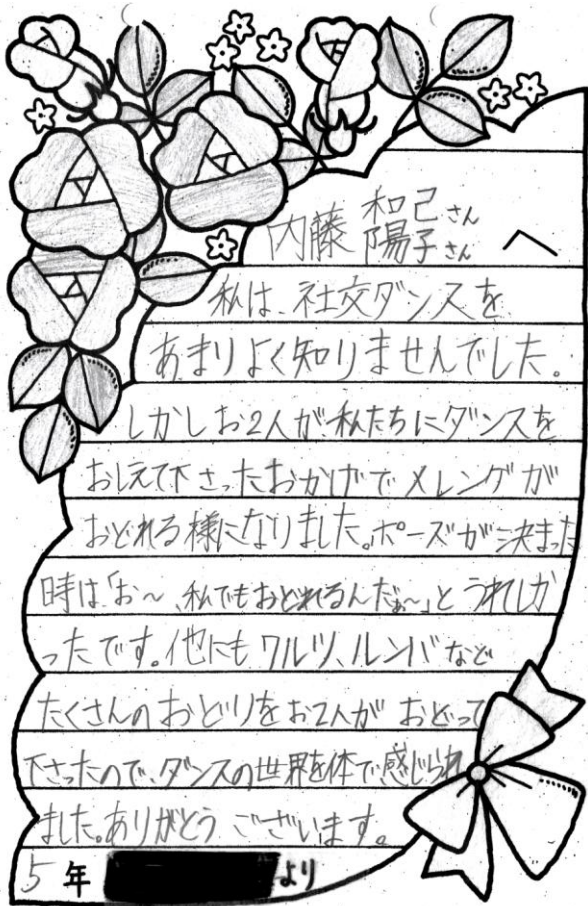 内藤 和己さん
陽子さん へ
私は、社交ダンスを
あまりよく知りませんでした。
しかしお2人が私たちにダンスを
おしえて下さったおかげでメレンゲが
おどれる様になりました。ポーズが決まった
時は「お〜、私でもおどれるんだぁ〜」とうれしか
ったです。他にもワルツ、ルンバなど
たくさんのおどりをお2人がおどって
下さったので、ダンスの世界を体で感じられ
ました。ありがとうございます。
5年 より